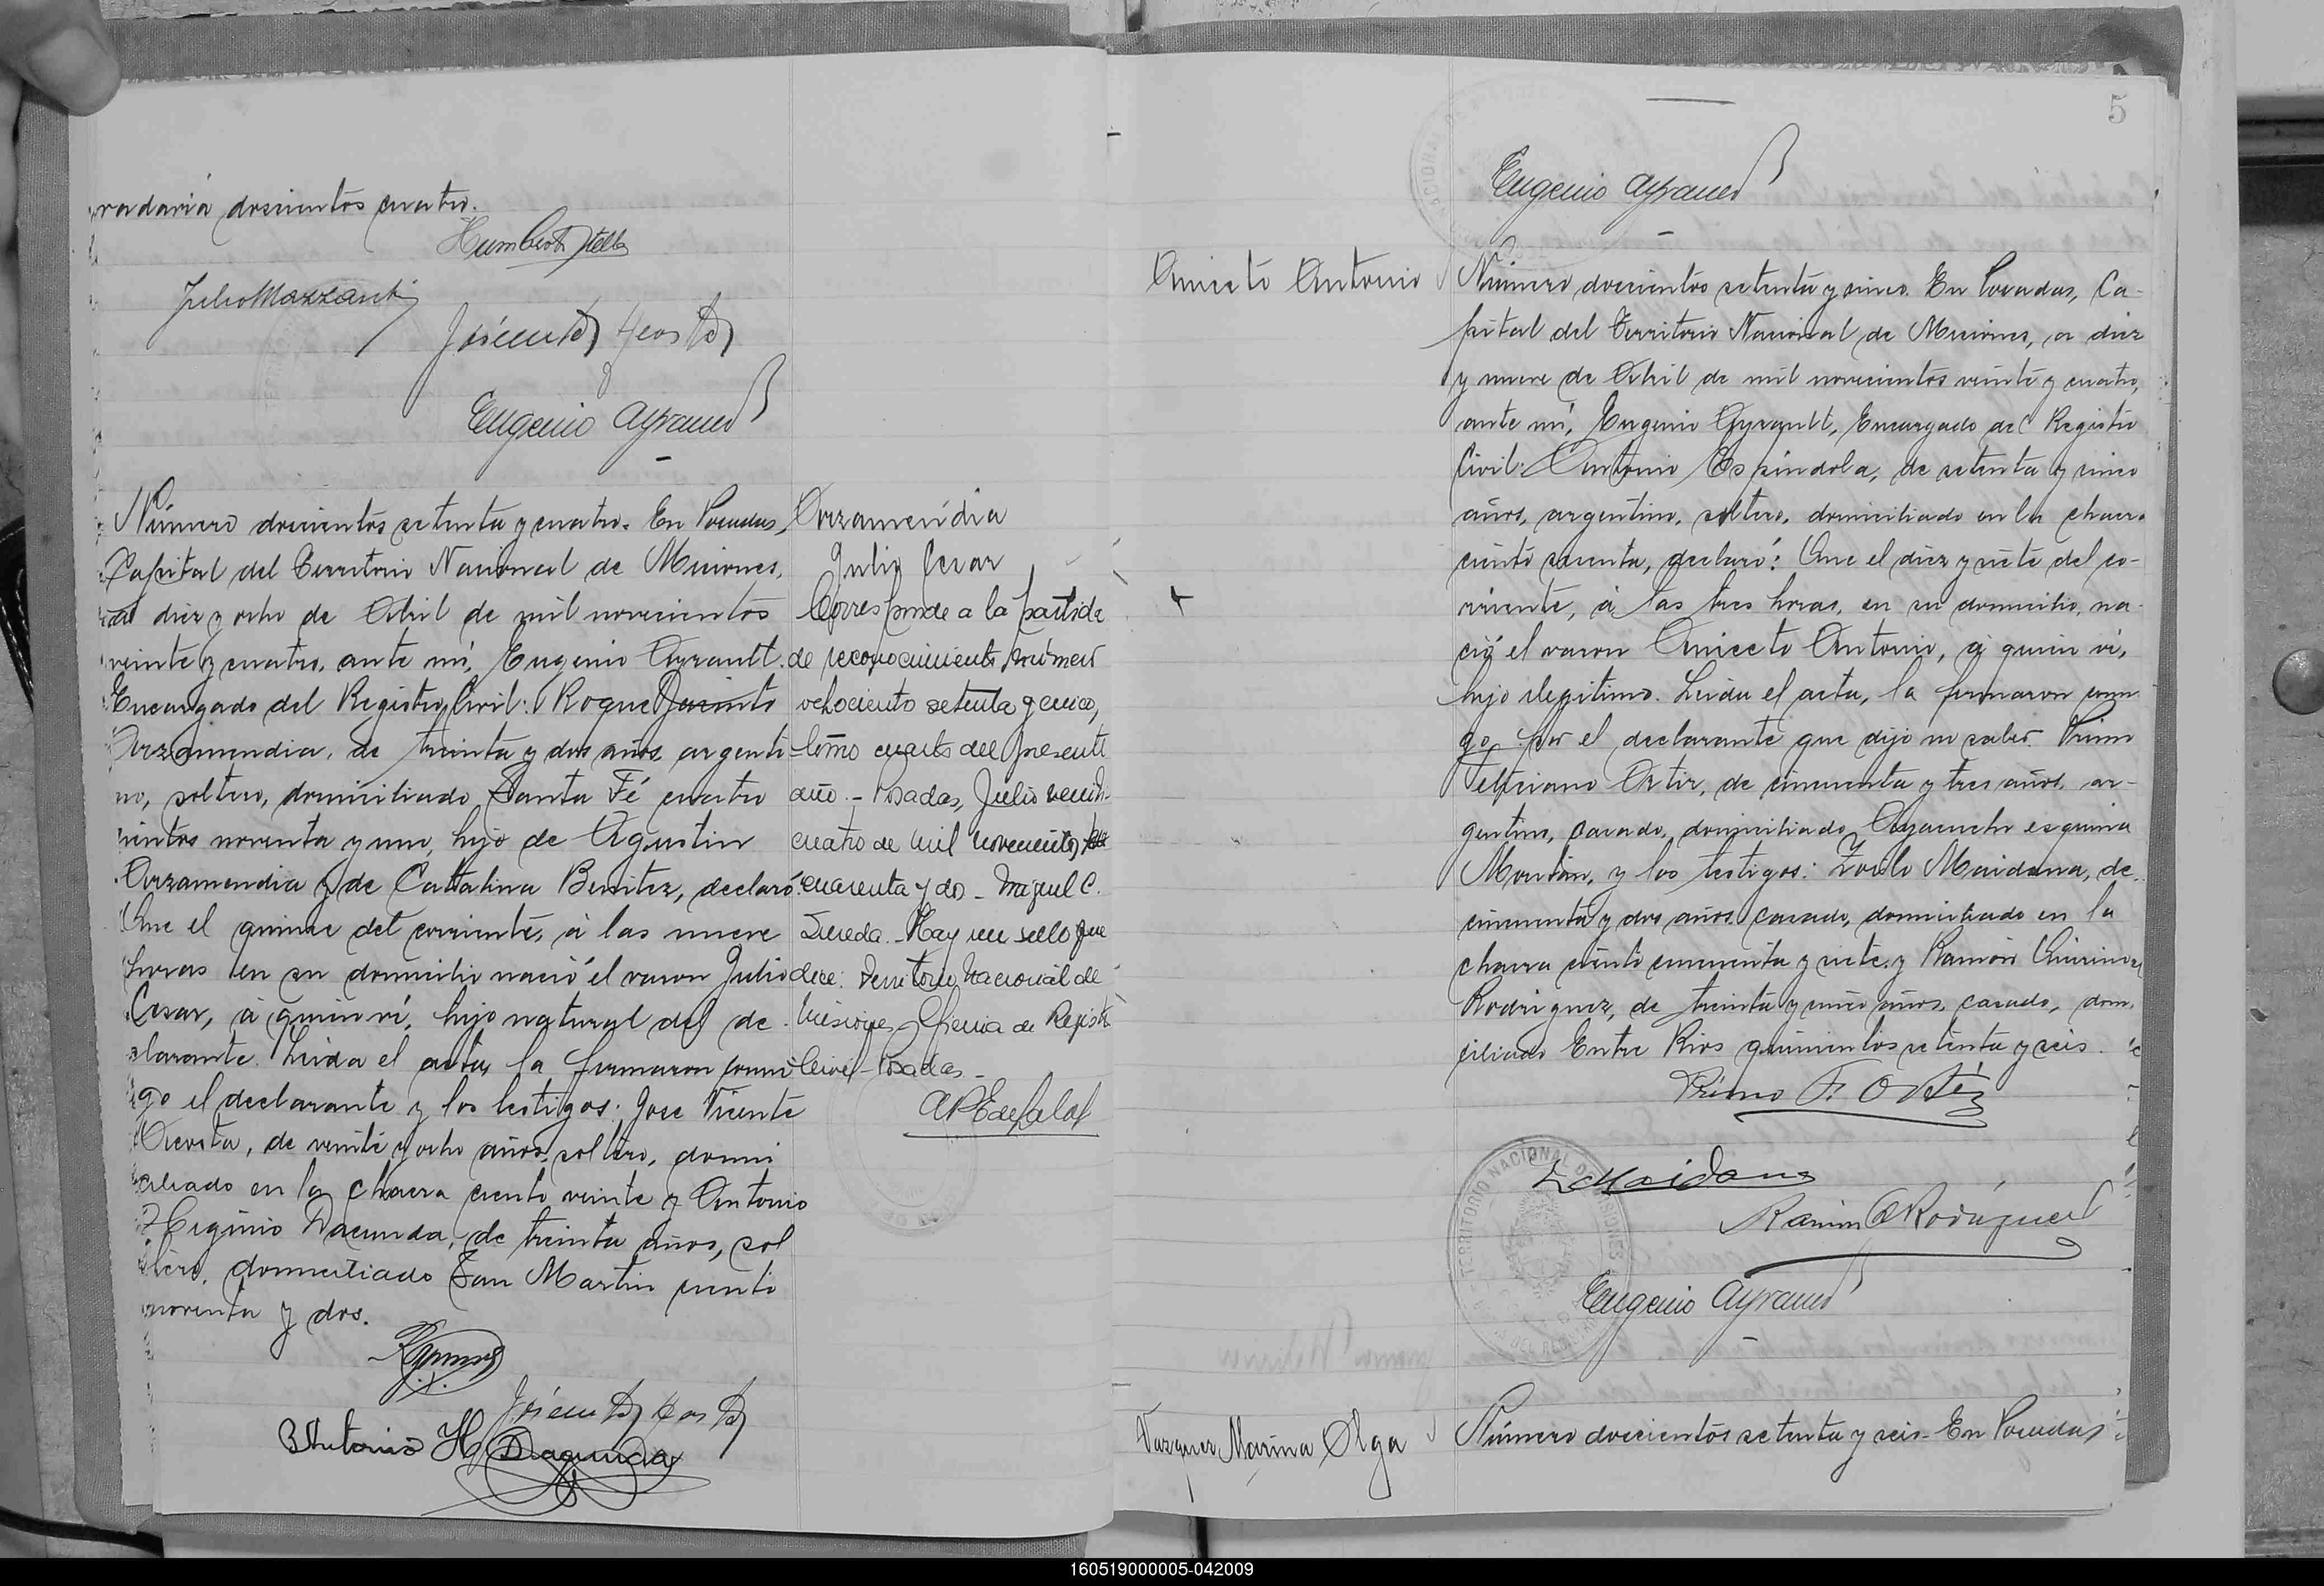 radaria doscientos cuatro.
Humberto Stella
Julio Mazzanti
José Vicente Acosta
Eugenio Ayrault
Número doscientos setenta y cuatro. En Posadas,
Capital del Territorio Nacional de Misiones,
a diez y ocho de Abril de mil novecientos
veinte y cuatro, ante mí, Eugenio Ayrault.
Encargado del Registro Civil: Roque Jacinto
Arzamendia, de treinta y dos años, argenti
no, soltero, domiciliado Santa Fé cuatro
cientos noventa y uno, hijo de Agustin
Arzamendia y de Catalina Benitez, declaró:
Que el quince del corriente, á las nueve
horas en su domicilio nació el varon Julio
Cesar, á quien ví, hijo natural del de
clarante. Leida el acta, la firmaron conmi
go el declarante y los testigos: Jose Vicente
Acosta, de veinte y ocho años, soltero, domi
ciliado en la chacra ciento veinte y Antonio
Higinio Dacunda, de treinta años, sol
tero, domiciliado San Martin ciento
noventa y dos.
José Vicente Acosta
Antonio H Dacunda
Arzamendia
Julio Cesar
Corresponde a la partida
de reconocimiento, número
ochociento setenta y cinco,
tomo cuarto del presente
año. - Posadas, Julio veinti
cuatro de mil novecientos
cuarenta y dos - Miguel C.
Hay un sello que
dice: Territorio Nacional de
Misiones - Oficina de Registro
Civil - Posadas -
5
Eugenio Ayrault
Aniceto Antonio
Número doscientos setenta y cinco. En Posadas, Ca-
pital del Territorio Nacional de Misiones, a diez
y nueve de Abril de mil novecientos veinte y cuatro,
ante mí, Eugenio Ayrault, Encargado del Registro
Civil: Antonio Espíndola, de setenta y cinco
años, argentino, soltero, domiciliado en la chacra
ciento sesenta, declaró: Que el diez y siete del co-
rriente, á las tres horas, en su domicilio, na-
ció el varon Aniceto Antonio, á quien ví,
hijo ilegitimo. Leida el acta, la firmaron conmi
go por el declarante que dijo no saber. Primo
Feliciano Ortiz, de cincuenta y tres años, ar-
gentino, casado, domiciliado Ayacucho esquina
y los testigos: Zoilo Maidana, de
cincuenta y dos años, casado, domiciliado en la
chacra ciento cincuenta y siete y Ramón
Rodriguez, de treinta y cinco años, casado, domi
ciliado Entre Rios quinientos setenta y seis.
Primo F. Ortíz
Z Maidana
Ramon Q Rodriguez
TERRITORIO NACIONAL DE MISIONES
Eugenio Ayrault
Vazquez Marina Olga
Número doscientos setenta y seis - En Posadas
160519000005-042009